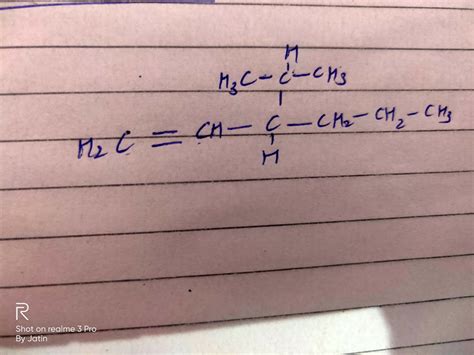 H
H3C-C-CH3
H2C=CH-C-CH2-CH2-CH3
H
R
Shot on realme 3 Pro
By Jatin